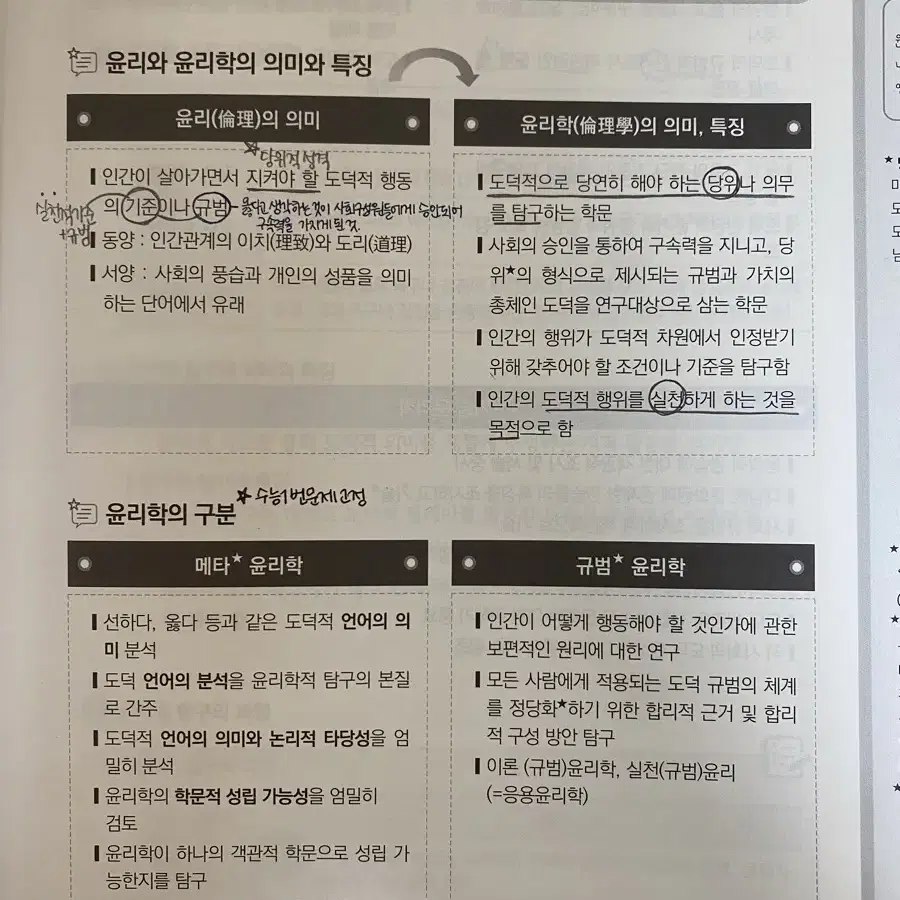 윤리와 윤리학의 의미와 특징
윤리(倫理)의 의미
★당위적 성격
인간이 살아가면서 지켜야 할 도덕적 행동
의 기준이나 규범
옳다고 생각하는 것이 사회구성원들에게 승인되어
구속력을 가지게 된 것.
실천적 기준
+규범
동양 : 인간관계의 이치(理致)와 도리(道理)
서양 : 사회의 풍습과 개인의 성품을 의미
하는 단어에서 유래
윤리학(倫理學)의 의미, 특징
도덕적으로 당연히 해야 하는 당위나 의무
를 탐구하는 학문
사회의 승인을 통하여 구속력을 지니고, 당
위★의 형식으로 제시되는 규범과 가치의
총체인 도덕을 연구대상으로 삼는 학문
인간의 행위가 도덕적 차원에서 인정받기
위해 갖추어야 할 조건이나 기준을 탐구함
인간의 도덕적 행위를 실천하게 하는 것을
목적으로 함
윤리학의 구분
★수능1번문제 고정
메타★ 윤리학
선하다, 옳다 등과 같은 도덕적 언어의 의
미 분석
도덕 언어의 분석을 윤리학적 탐구의 본질
로 간주
도덕적 언어의 의미와 논리적 타당성을 엄
밀히 분석
윤리학의 학문적 성립 가능성을 엄밀히
검토
윤리학이 하나의 객관적 학문으로 성립 가
능한지를 탐구
규범★ 윤리학
인간이 어떻게 행동해야 할 것인가에 관한
보편적인 원리에 대한 연구
모든 사람에게 적용되는 도덕 규범의 체계
를 정당화★하기 위한 합리적 근거 및 합리
적 구성 방안 탐구
이론 (규범)윤리학, 실천(규범)윤리
(=응용윤리학)